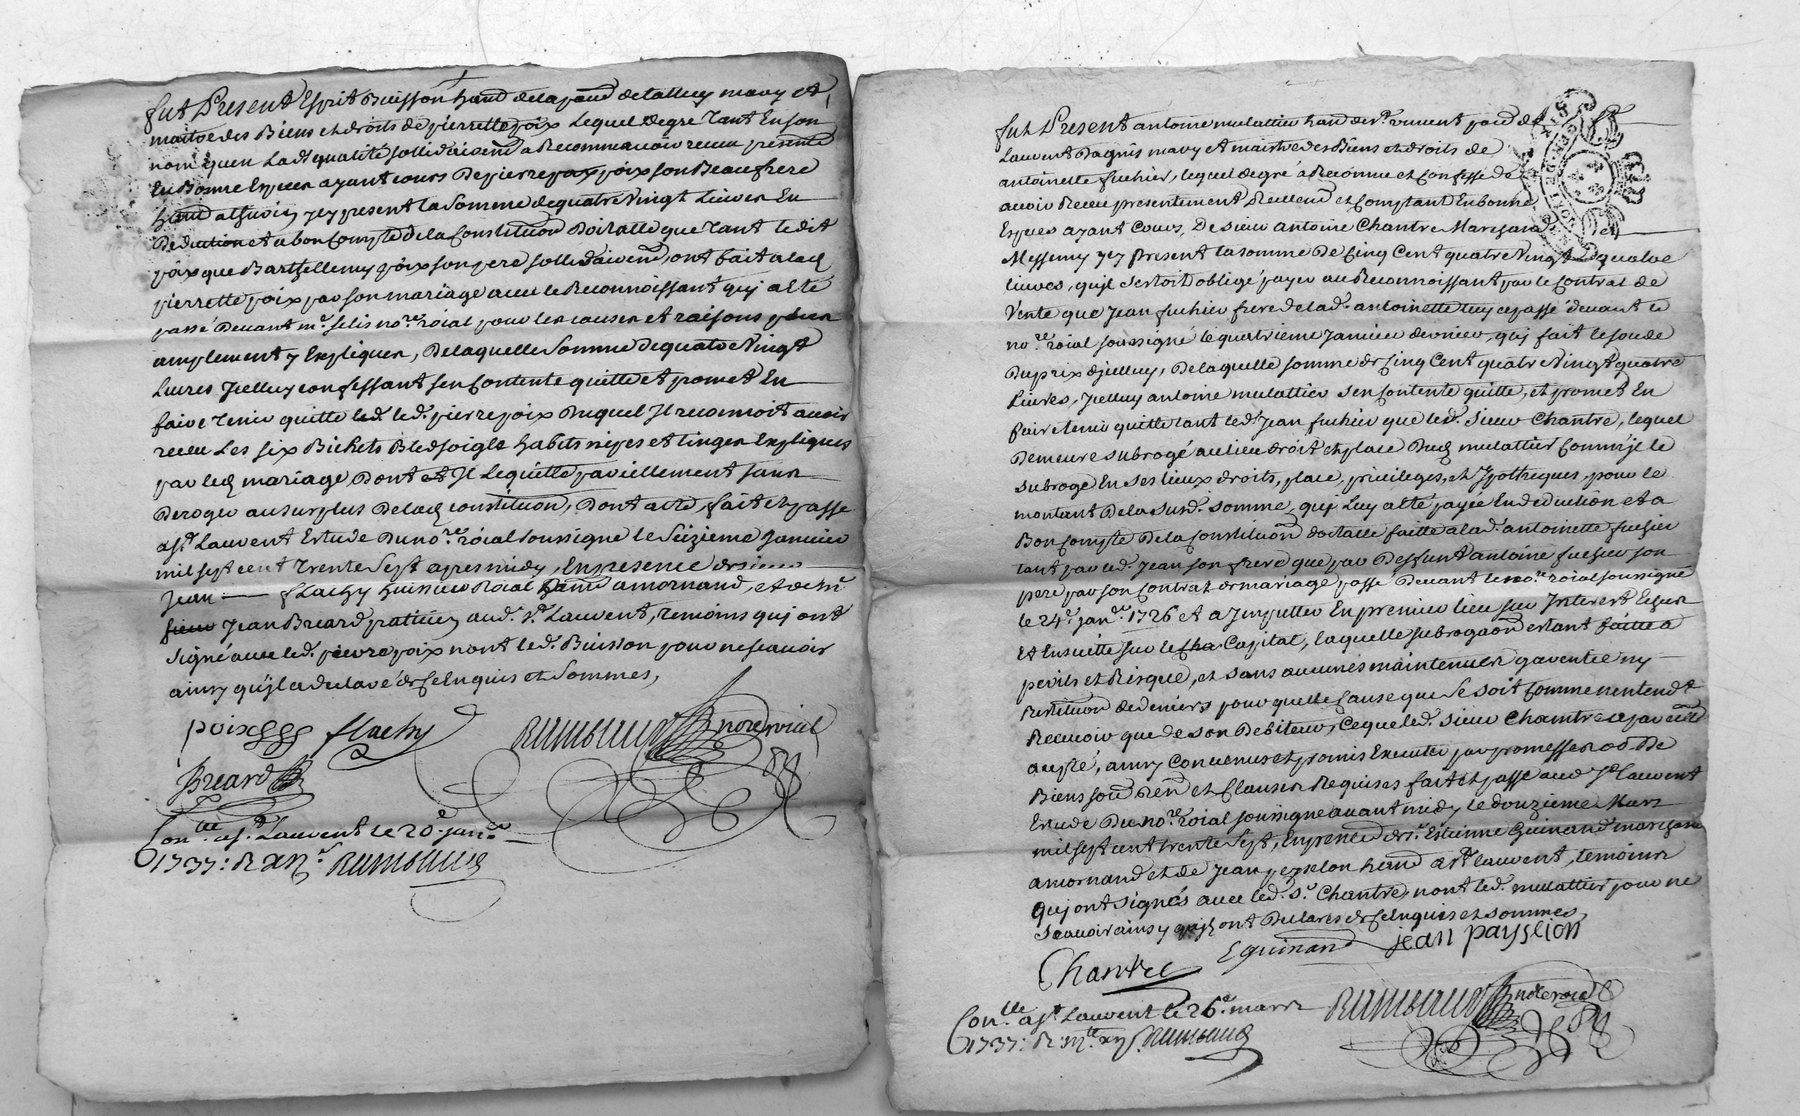 fut Present Esprit Buisson hant de la parr. de talluy mary et
maitre des Biens et droits de pierrette poix Lequel degre tant En son
nom quen Lad. qualité sollidairemt a Reconnu avoir receu presentemt
En Bonne Especes ayant cours De pierre poix son Beaufrere
hant audit y present la Somme de quatre Vingt Livres En
Deduction et a bon Compte de la Constitution Dotalle que tant ledit
poix que Barthellemy poix son pere sollidairemt, ont fait a lad.
pierrette poix par son mariage avec le Reconnoissant quj a eté
passé Devant me no.re roial pour les causes et raisons plus
amplement y Expliquez, De laquelle Somme de quatre Vingt
Livres Jcelluy confessant sen Contente quitte et promet En
faire tenir quitte led. pierre poix Duquel Jl reconnoit avoir
receu Les six Bichets Bled soigle habits nipes et linges Expliquez
par led. mariage Dont Jl Le quitte pareillement sans
Deroger au surplus De lad. constitution, Dont acte, fait et passé
a St. Laurent Estude Du no.re roial soussigné le Seizieme Janvier
mil sept cent trente Sept apres midy, En presence de sieur
Jean flachy huissier Roial hant a mornand, et de sr
Jean Breard praticien aud. St. Laurent, temoins quj ont
signé avec led. pierre poix non led. Buisson pour ne scavoir
ainsy quil a declaré de ce Enquis et Sommé,
poix flachy note roial
Breard
Con.lle a St. Laurent le 20e janer
1737: R
fut Present antoine mulattier hant de St. vincent parr. de
Laurent Dagnis mary et maistre des Biens et droits de
antoinette fuchier, lequel degré a Reconnu et Confessé de
avoir Receu presentement Reellemt et Comptant En bonne
Especes ayant Cours, De sieur antoine Chantre Marchand
Messimy y present la somme De Cinq Cent quatre Vingt quatre
livres, quil s'estoit obligé payer au Reconnoissant par le Contrat de
Vente que Jean fuchier frere de lad. antoinette luy a passé devant le
no.re roial soussigné le quatrieme Janvier dernier, quj fait le solde
Du prix dJcelluy, De laquelle somme de Cinq Cent quatre Vingt quatre
Livres, Jcelluy antoine mulattier sen Contente quitte, et promet En
faire tenir quitte tant led. Jean fuchier que led. Sieur Chantre, lequel
Demeure subrogé au lieu droit et place Dud. mulattier Comme Jl le
subroge En ses lieux droits, place, privileges, et Jpotheques, pour le
montant De la susd. somme, quj Luy a eté payée En deduction et a
Bon Compte De la Constitution doctalle faitte a lad. antoinette fuchier
tant par led. Jean son frere que par Deffunt antoine fuchier son
pere par son Contrat de mariage passé Devant le no.re roial soussigné
le 24e jan.er 1726 et a Jmputter En premier lieu sur Interest Echus
Et Ensuitte sur le Capital, laquelle subrogation estant faitte a
perils et Risque, et sans aucunes maintenues garentie ny
restitution de deniers pour quelle Cause que Ce soit Comme nentendt
Recevoir que de son Debiteur, Ce que led. sieur Chantre a
accepté, ainsy Convenus et promis Executer par promesses De
Biens soumn Renn et Clauses Requises fait et passé aud St. Laurent
Estude Du no.re roial soussigné avant midy le douzieme Mars
mil sept cent trente Sept, En presence de sr. Estienne Guinand marchand
a mornand et de Jean hant a St. laurent, temoins
quj ont signés avec led. sr. Chantre, non led. mulattier pour ne
scavoir ainsy quils ont Declarés de ce Enquis et sommés,
E guinand jean paysslion
Chantre
note roial
Con.lle a St. Laurent le 26e. mars
1737: R